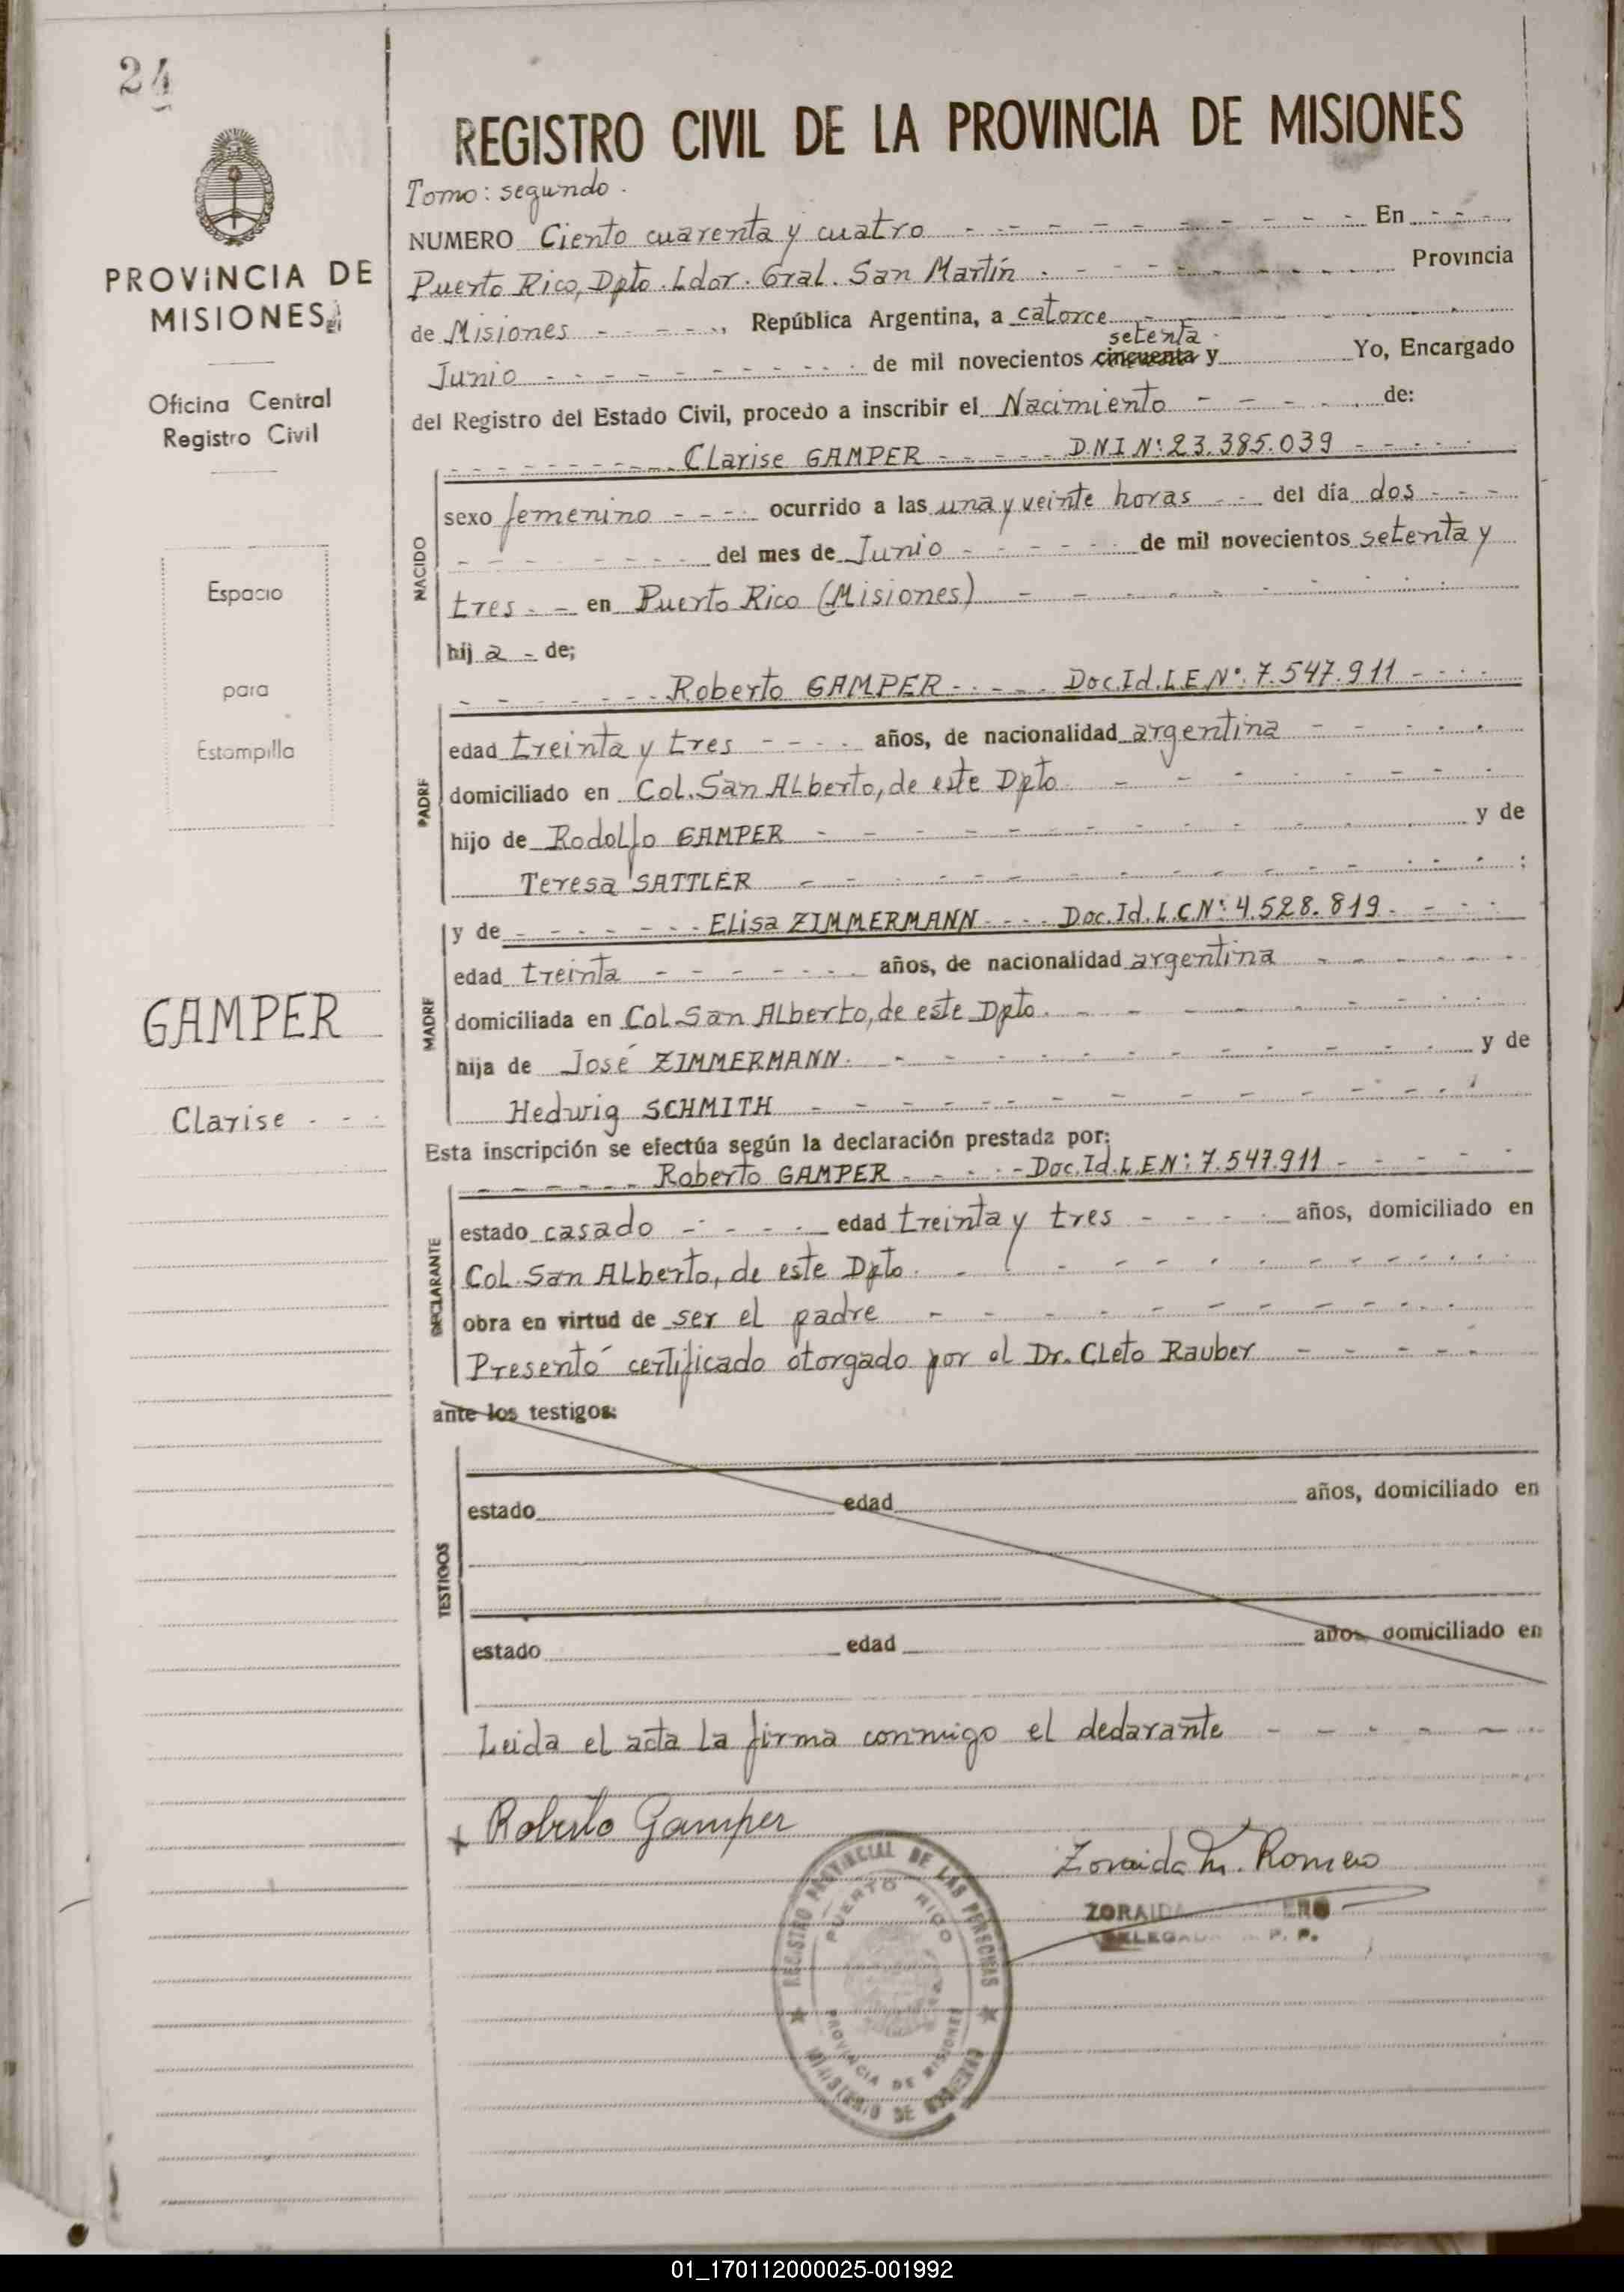 24
PROVINCIA DE
MISIONES
Oficina Central
Registro Civil
Espacio
para
Estampilla
GAMPER
Clarise - - -
REGISTRO CIVIL DE LA PROVINCIA DE MISIONES
Tomo: segundo.
NUMERO Ciento cuarenta y cuatro - - - En - - -
Puerto Rico, Dpto. Ldor. Gral. San Martín . - - - Provincia
de Misiones - - - , República Argentina, a catorce - - -
setenta -
Junio - - - de mil novecientos cincuenta y Yo, Encargado
del Registro del Estado Civil, procedo a inscribir el Nacimiento - - - de:
- - - Clarise GAMPER - - - DNI Nº: 23.385.039 - - -
NACIDO
sexo femenino - - - ocurrido a las una y veinte horas - - del día dos - - -
- - - del mes de Junio - - - de mil novecientos setenta y
tres. - en Puerto Rico (Misiones) - - -
hij a - de;
- - - Roberto GAMPER - - - Doc.Id.L.E.Nº: 7.547.911 - - -
PADRE
edad treinta y tres - - - años, de nacionalidad argentina - - -
domiciliado en Col. San Alberto, de este Dpto. - - -
hijo de Rodolfo GAMPER - - - y de
Teresa SATTLER - - - ;
y de - - - Elisa ZIMMERMANN - - - Doc.Id.L.C.Nº: 4.528.819 - - -
MADRE
edad treinta - - - años, de nacionalidad argentina - - -
domiciliada en Col. San Alberto, de este Dpto. - - -
hija de José ZIMMERMANN. - - - y de
Hedwig SCHMITH - - -
Esta inscripción se efectúa según la declaración prestada por:
- - - Roberto GAMPER - - - Doc.Id.L.E.Nº: 7.547.911 - - -
DECLARANTE
estado casado - - - edad treinta y tres - - - años, domiciliado en
Col. San Alberto, de este Dpto. - - -
obra en virtud de ser el padre - - -
Presentó certificado otorgado por el Dr. Cleto Rauber - - -
ante los testigos:
TESTIGOS
estado edad años, domiciliado en
estado edad años, domiciliado en
Leida el acta la firma conmigo el declarante - - -
+ Roberto Gamper
Zoraida M. Romero
ZORAIDA
DELEGADA R. P. P.
REGISTRO PROVINCIAL DE LAS PERSONAS
PUERTO RICO
PROVINCIA DE MISIONES
MINISTERIO DE GOBIERNO
01_170112000025-001992